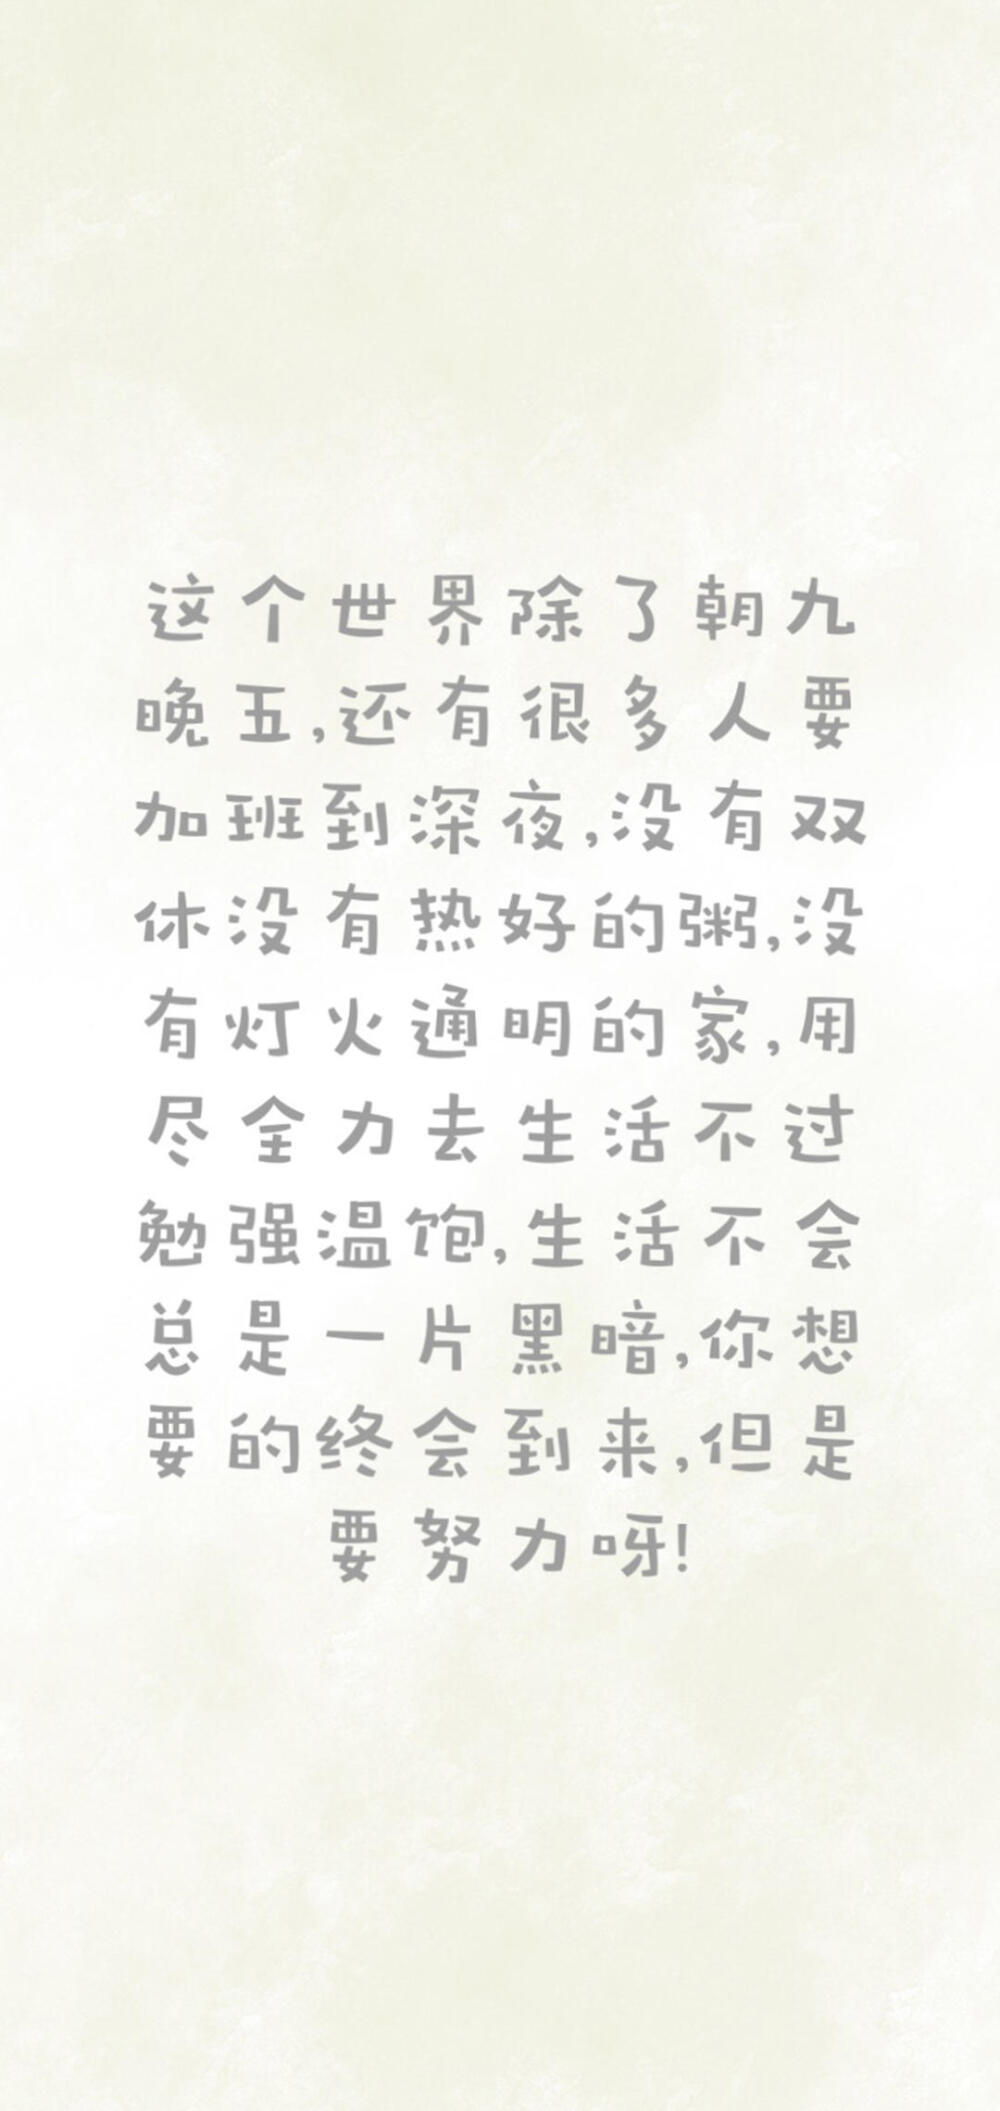 这个世界除了朝九
晚五,还有很多人要
加班到深夜,没有双
休没有热好的粥,没
有灯火通明的家,用
尽全力去生活不过
勉强温饱,生活不会
总是一片黑暗,你想
要的终会到来,但是
要努力呀!